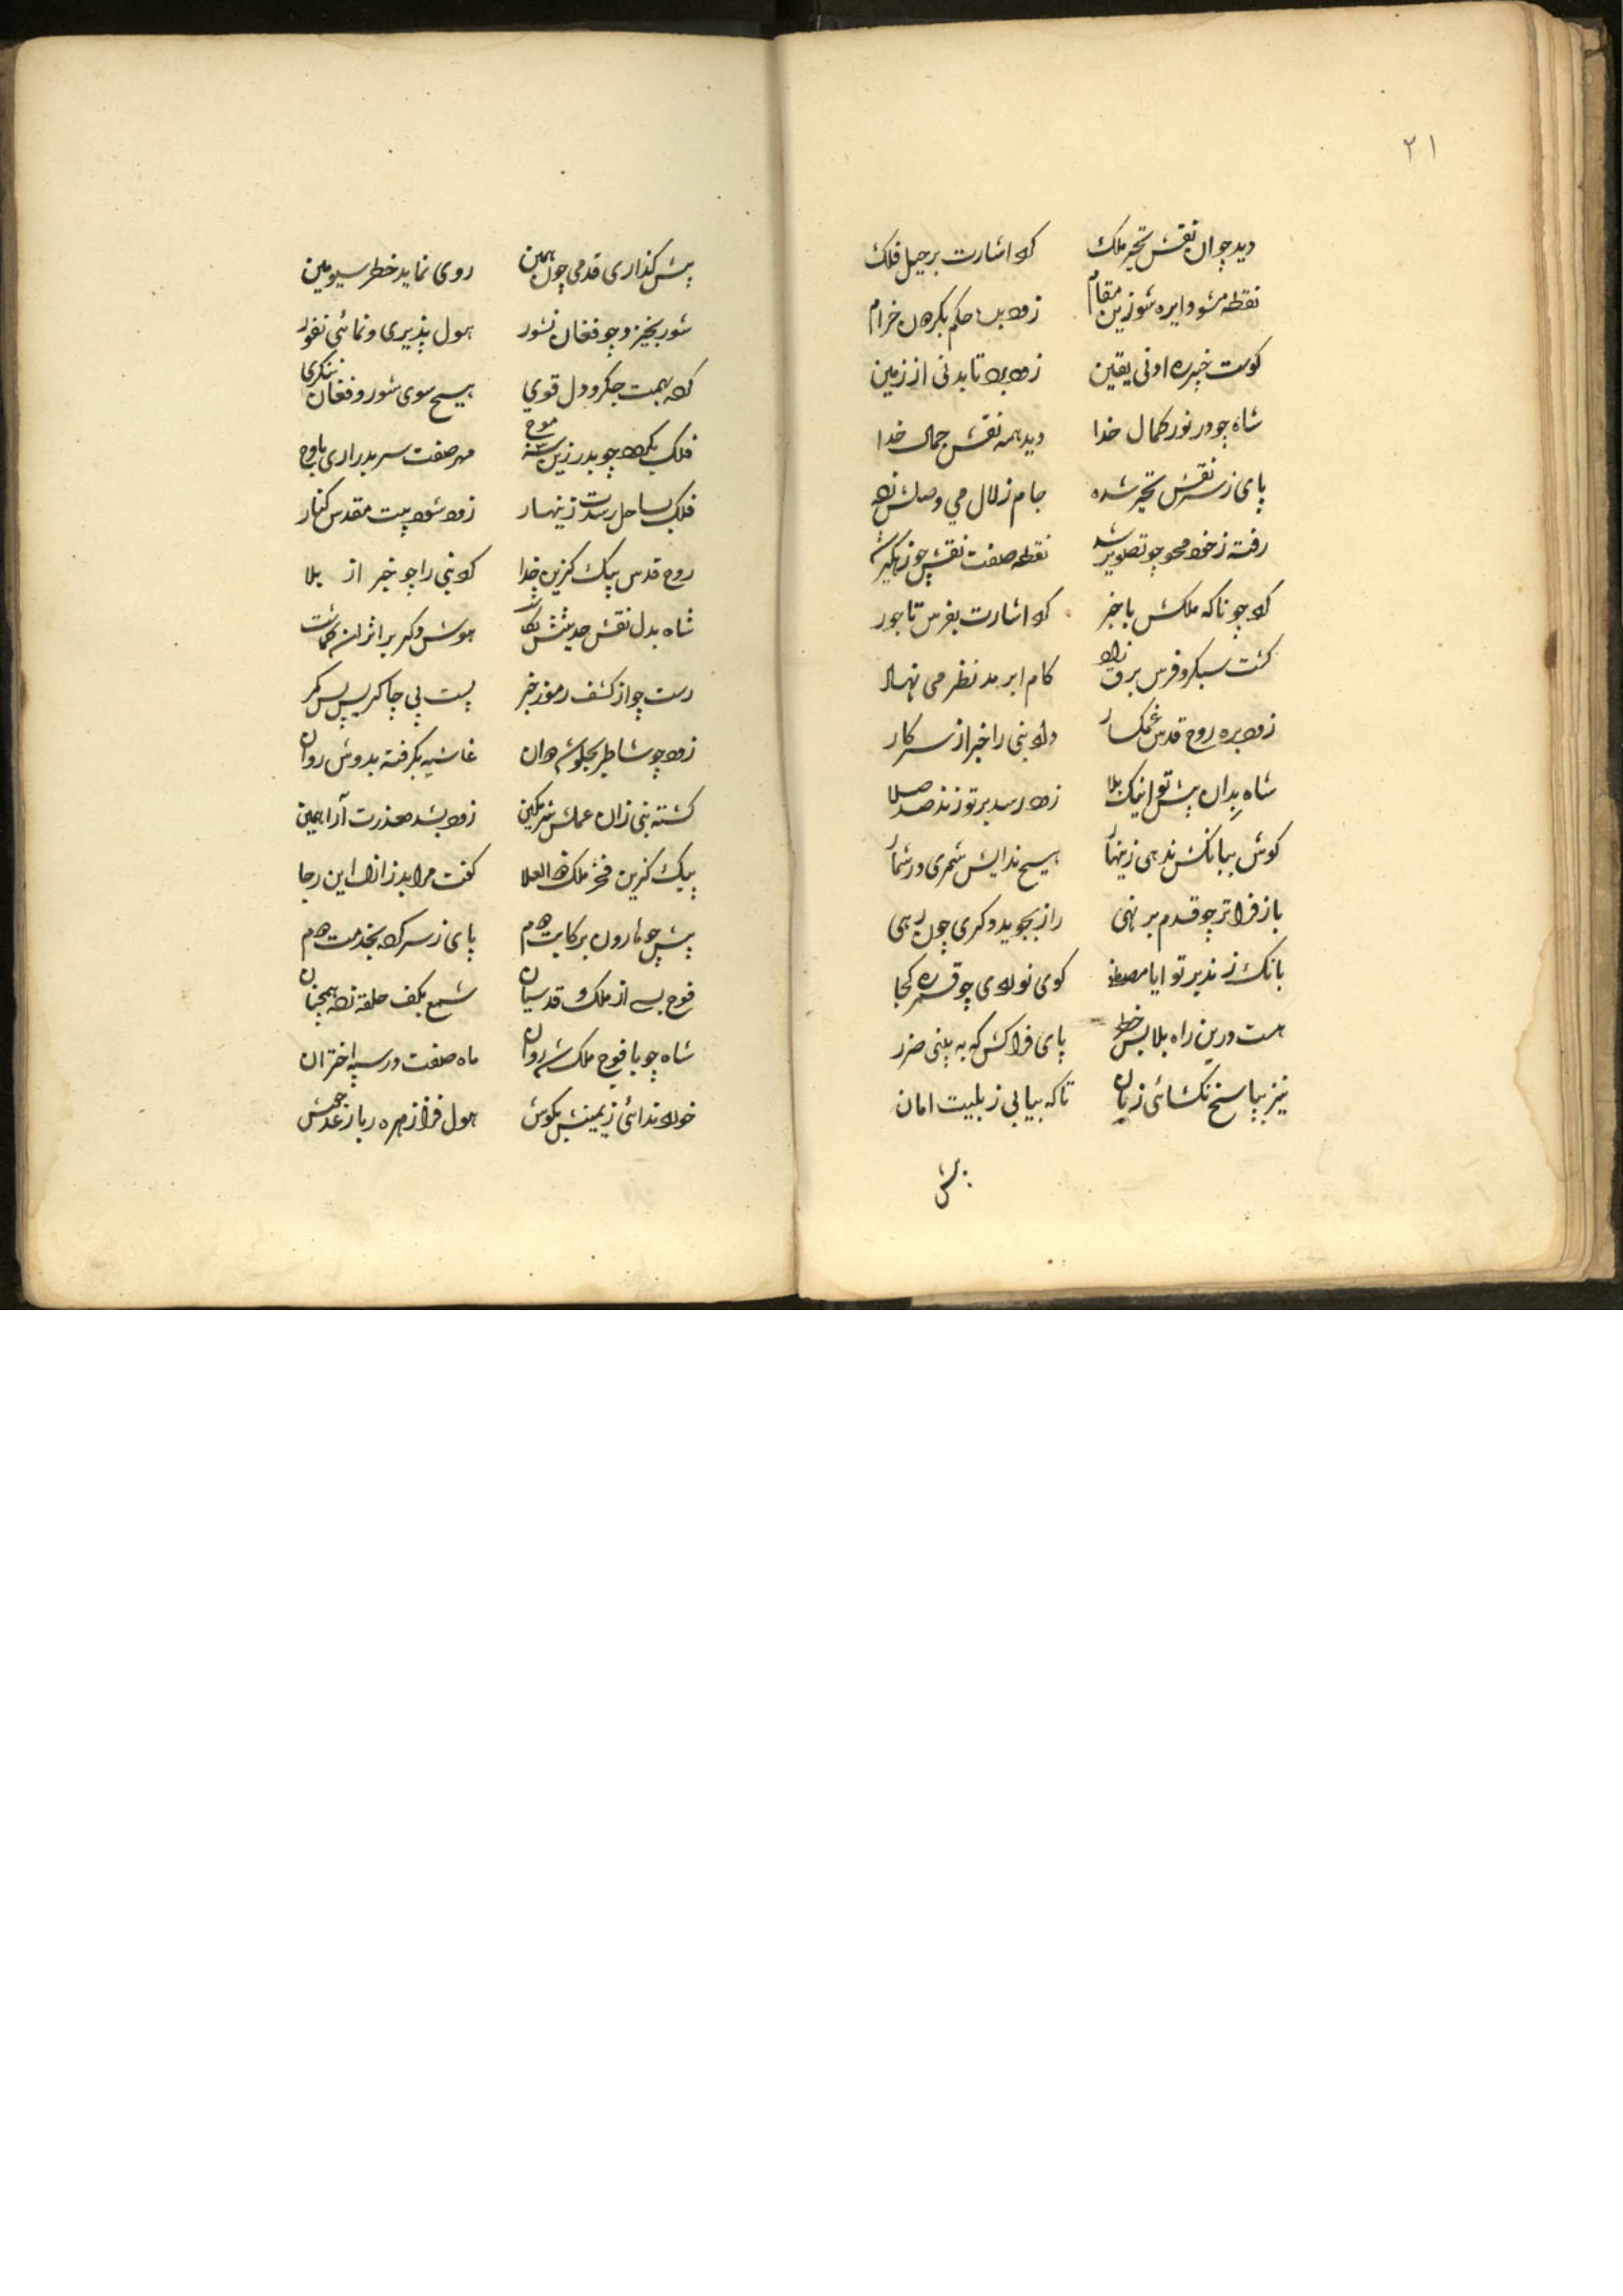 ۲۱
دید چو آن نقش تحیر ملک کرد اشارت بر حیل فلک
نقطه مشو دایره شو زین مقام زود بیا حکم بکردن خرام
کوست خبره اونی یقین زود برد تا بدنی از زمین
شاه چو در نور کمال خدا دید همه نقش جمال خدا
پای ز سر نقش تحیر شده جام زلال می وصلش زده
رفته ز خود محو چو تصویر شد نقطه صفت نقش چو
کرد چو ناکه ملکش با خبر کرد اشارت بفرس تاجور
کشت سبکرو فرس برق زاد کام ابر مد نظر می نهاد
زود بره روح قدس غمکسار داد نبی را خبر از سر کار
شاه بدان پیش تو اینک بلا زود رسد بر تو زند صد صلا
کوش ببانکش ندهی زینهار هیچ ندایش شمری در شمار
باز فراتر چو قدم بر نهی راز بجوید دکری چون رهی
بانک زند بر تو ایا مصطفا کوی تو لادی چو قمر کجا
هست درین راه بلا بس خطر پای فراکش که به بینی ضرر
نیز بپاسخ نکشائی زبان تاکه بیابی ز بلیت امان
پیش
پیش کذاری قدمی چون همین روی نماید خطر سیومین
شور بخیزد چو فغان نشور هول پذیری و نمائی نفور
کرد بهمت جکر و دل قوی هیچ سوی شور و فغان ننکری
فلک بکرد چو بدر زین سه موج مهر صفت سر بدر آری باوج
فلک بساحل رسدت زینهار زود شود بیت مقدس کنار
روح قدس پیک کزین خدا کرد نبی را چو خبر از بلا
شاه بدل نقش حدیثش نکاشت هوش دکر بر اثر آن کماشت
رست چو از کشف رموز خبر بست پی چاکریش پس کمر
زود چو شاطر بجلوش دوان غاشیه بکرفته بدوش روان
کشته نبی زان عملش شرمکین زود بشد معذرت آرا همین
پیک کزین فخر ملک ذو العلا کفت مرا بد ز ازل این رجا
پیش چو هارون برکابت دوم پای ز سر کرد بخدمت دوم
فوج بسی از ملک و قدسیان شمع بکف حلقه زده همچنان
شاه چو با فوج ملک شد روان ماه صفت در سپه اختران
خورد ندائی زیمینش بکوش هول فزا زهره ربا رعد جوش